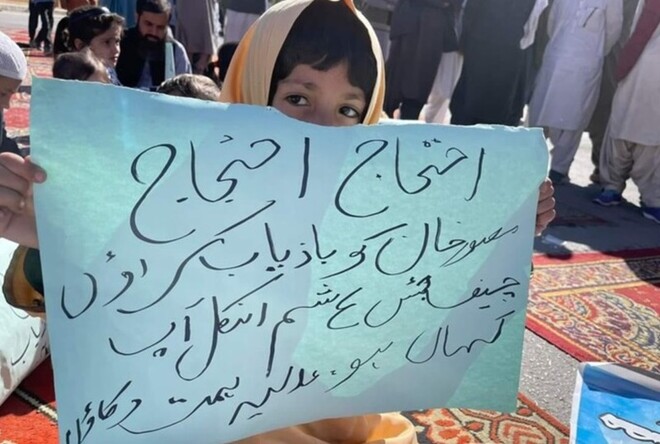 احتجاج احتجاج
مصور خان کو بازیاب کراؤں
چیف جسٹس ہاشم انکل آپ
کہاں ہو۔ عدلیہ ہمت دکاؤں